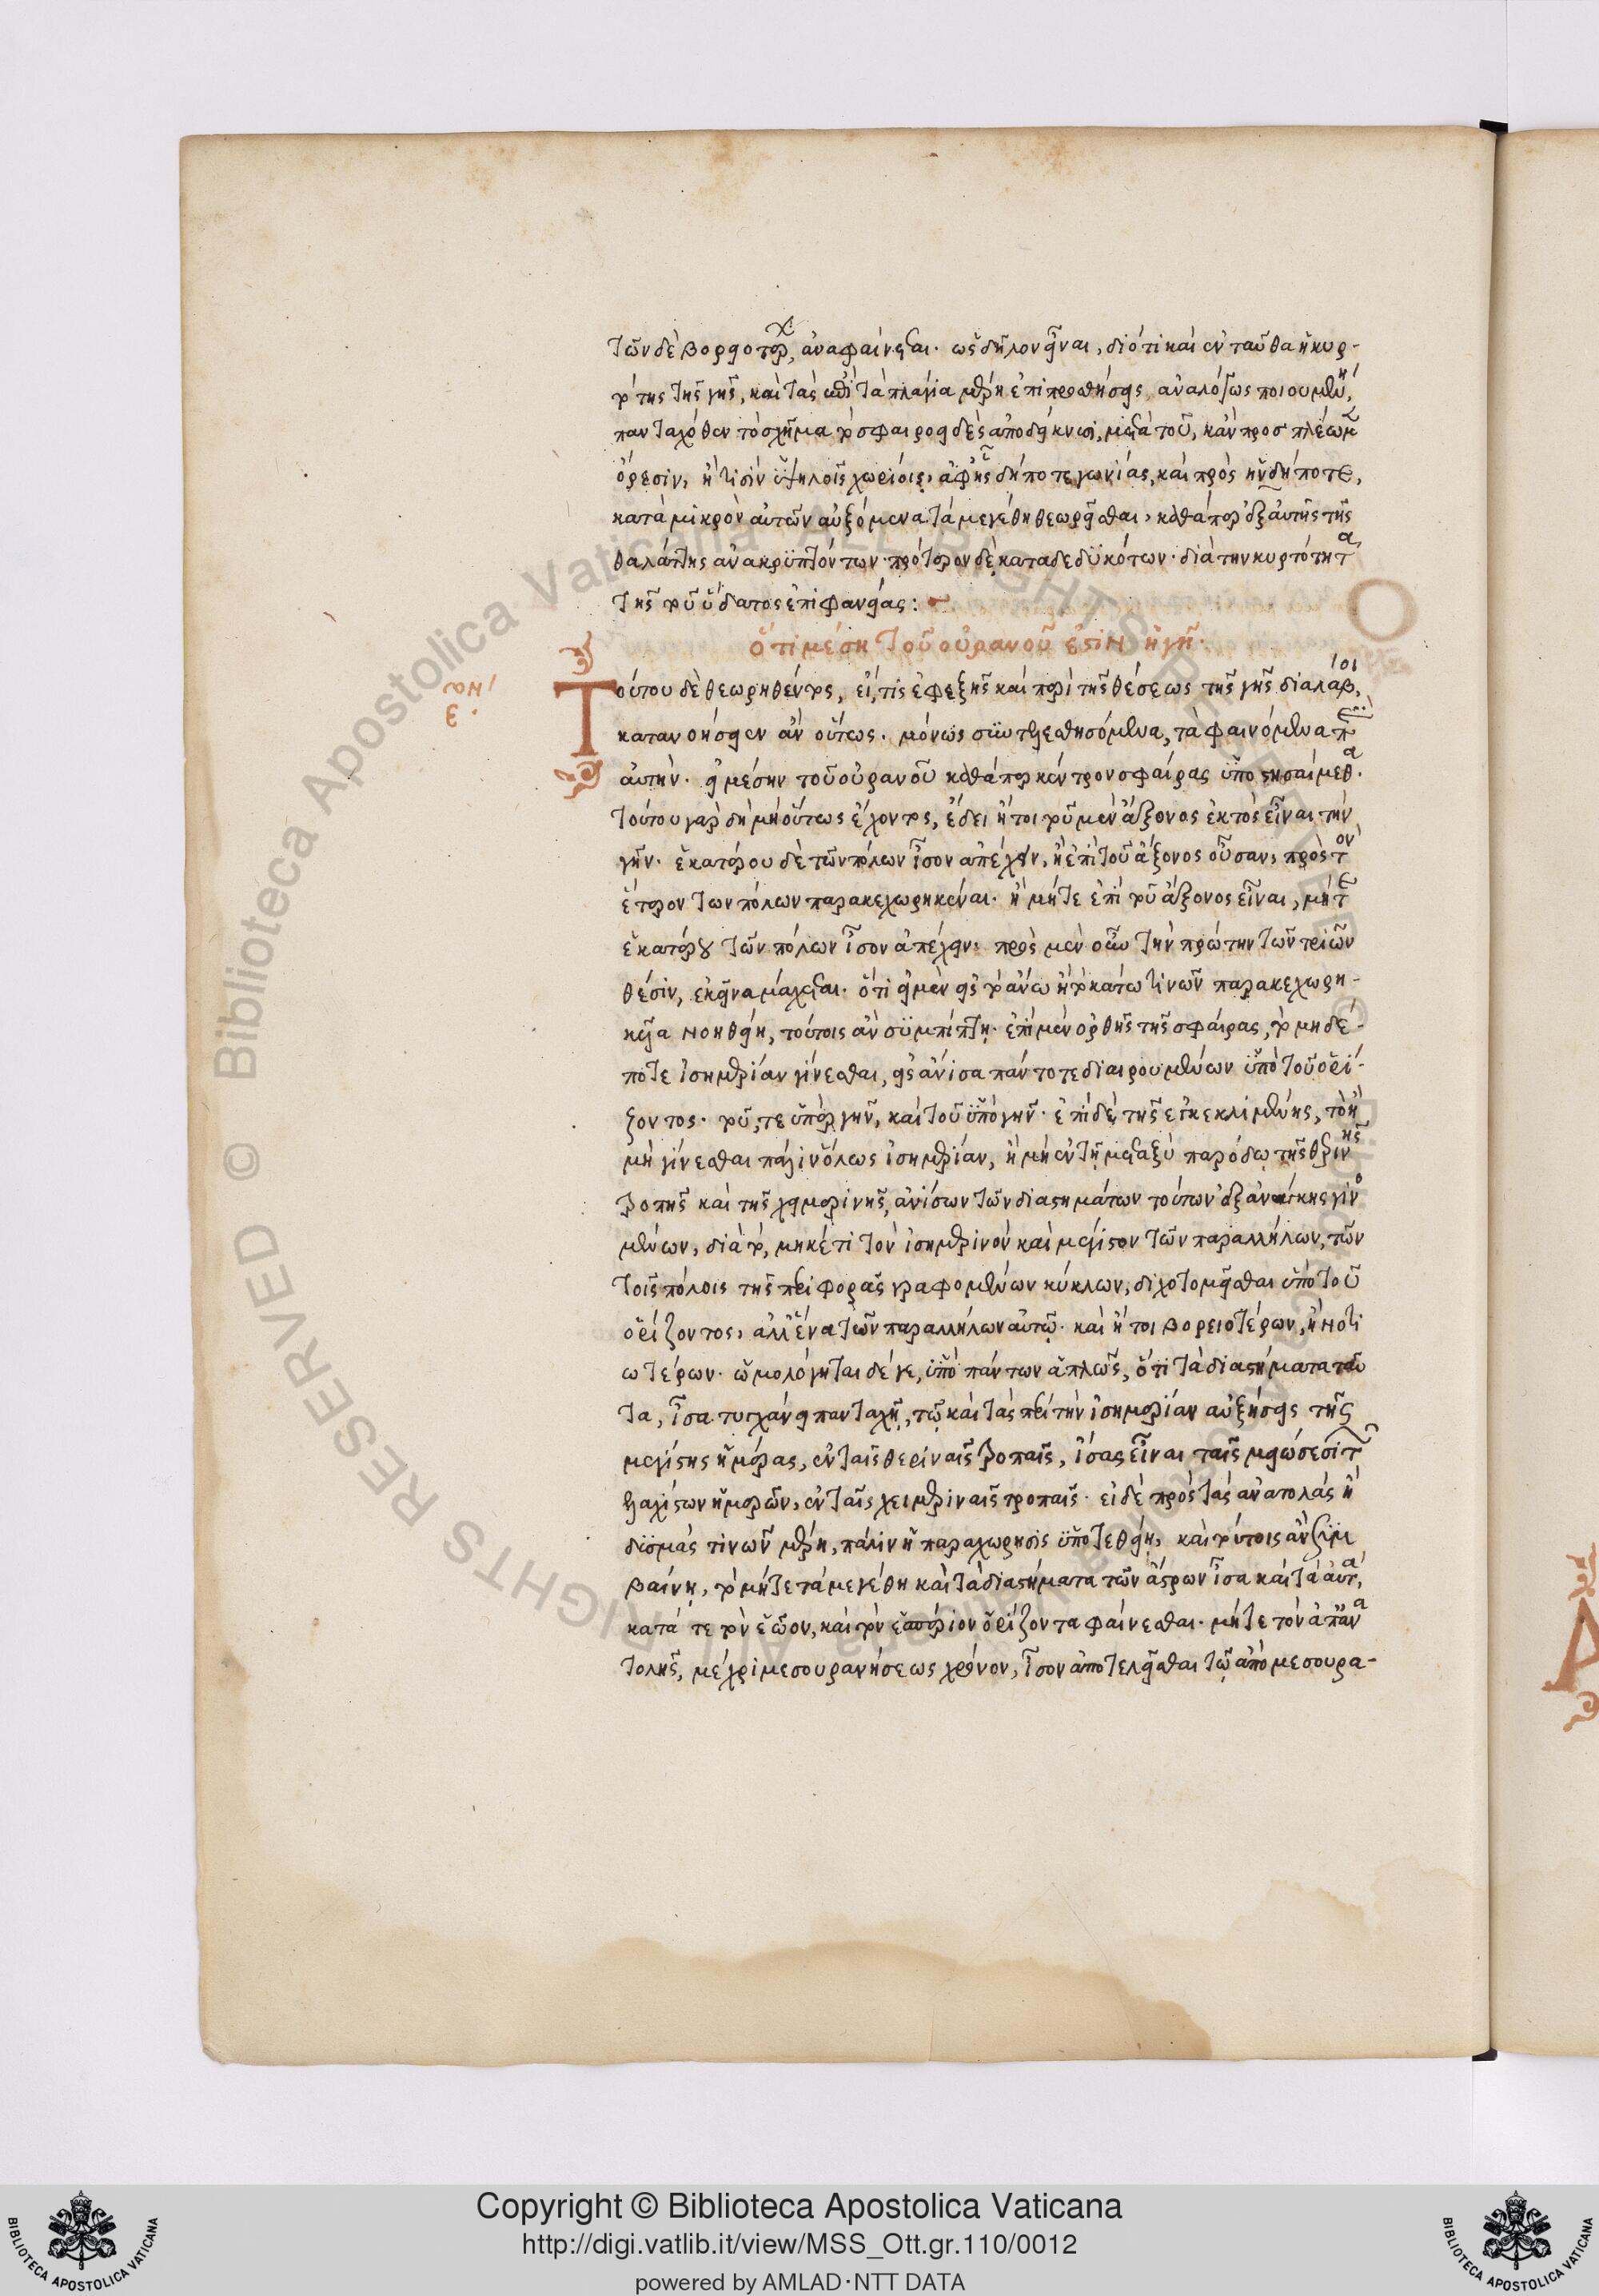 τῶν δὲ βορειοτέρων, ἀναφαίνεται. ὡς δῆλον εἶναι, διότι καὶ ἐνταῦθα ἡ κυρ-
τότης τῆς γῆς, καὶ τὰς ἐπὶ τὰ πλάγια μέρη ἐπιπροσθήσεις, ἀναλόγως ποιουμένη,
πανταχόθεν τὸ σχῆμα τὸ σφαιροειδὲς ἀποδείκνυσι, μετὰ τοῦ, κἂν προσπλέωμεν
ὄρεσιν, ἤ τισιν ὑψηλοῖς χωρίοις, ἀφ' ἧς δήποτε γωνίας, καὶ πρὸς ἣν δήποτε,
κατὰ μικρὸν αὐτῶν αὐξόμενα τὰ μεγέθη θεωρεῖσθαι, καθάπερ ἐξ αὐτῆς τῆς
θαλάττης ἀνακρυπτόντων. πρότερον δὲ καταδεδυκότων. διὰ τὴν κυρτότητα
τῆς τοῦ ὕδατος ἐπιφανείας:
ὅτι μέση τοῦ οὐρανοῦ ἐστὶν ἡ γῆ.
Τούτου δὲ θεωρηθέντος, εἴ, τις ἐφεξῆς καὶ περὶ τῆς θέσεως τῆς γῆς διαλάβοι,
κατανοήσειεν ἂν οὕτως. μόνως συντελεσθησόμενα, τὰ φαινόμενα περὶ
αὐτήν. εἰ μέσην τοῦ οὐρανοῦ καθάπερ κέντρον σφαίρας ὑποστησαίμεθα.
τούτου γὰρ δὴ μὴ οὕτως ἔχοντος, ἔδει ἤτοι τοῦ μὲν ἄξονος ἐκτὸς εἶναι τὴν
γῆν. ἑκατέρου δὲ τῶν πόλων ἴσον ἀπέχειν, ἢ ἐπὶ τοῦ ἄξονος οὖσαν, πρὸς τὸν
ἕτερον τῶν πόλων παρακεχωρηκέναι. ἢ μήτε ἐπὶ τοῦ ἄξονος εἶναι, μήτε
ἑκατέρου τῶν πόλων ἴσον ἀπέχειν. πρὸς μὲν οὖν τὴν πρώτην τῶν τριῶν
θέσιν, ἐκεῖνα μάχεται. ὅτι εἰ μὲν εἰς τὸ ἄνω ἢ τὸ κάτω τινῶν παρακεχωρη-
κυῖα νοηθείη, τούτοις ἂν συμπίπτῃ. ἐπὶ μὲν ὀρθῆς τῆς σφαίρας, τὸ μηδέ-
ποτε ἰσημερίαν γίνεσθαι, εἰς ἄνισα πάντοτε διαιρουμένων ὑπὸ τοῦ ὁρί-
ζοντος. τοῦ, τε ὑπὲρ γῆν, καὶ τοῦ ὑπὸ γῆν. ἐπὶ δὲ τῆς ἐγκεκλιμένης, τὸ ἢ
μὴ γίνεσθαι πάλιν ὅλως ἰσημερίαν, ἢ μὴ ἐν τῇ μεταξὺ παρόδῳ τῆς θερινῆς
τροπῆς καὶ τῆς χειμερινῆς, ἀνίσων τῶν διαστημάτων τούτων ἐξ ἀνάγκης γινο
μένων, διὰ τὸ, μηκέτι τὸν ἰσημερινὸν καὶ μέγιστον τῶν παραλλήλων, τῶν
τοῖς πόλοις τῆς περιφορᾶς γραφομένων κύκλων, διχοτομεῖσθαι ὑπὸ τοῦ
ὁρίζοντος, ἀλλ' ἕνα τῶν παραλλήλων αὐτῷ. καὶ ἤτοι βορειοτέρων, ἢ νοτι
ωτέρων. ὡμολόγηται δέ γε, ὑπὸ πάντων ἁπλῶς, ὅτι τὰ διαστήματα ταῦ
τα, ἴσα τυγχάνει πανταχῇ, τῷ καὶ τὰς περὶ τὴν ἰσημερίαν αὐξήσεις τῆς
μεγίστης ἡμέρας, ἐν ταῖς θεριναῖς τροπαῖς, ἴσας εἶναι ταῖς μειώσεσι τῶν
ἐλαχίστων ἡμερῶν, ἐν ταῖς χειμεριναῖς τροπαῖς. εἰ δὲ πρὸς τὰς ἀνατολὰς ἢ
δυσμὰς τινῶν μέρη, πάλιν ἡ παραχώρησις ὑποτεθείη, καὶ τούτοις ἂν συμ
βαίνῃ, τὸ μήτε τὰ μεγέθη καὶ τὰ διαστήματα τῶν ἄστρων ἴσα καὶ τὰ αὐτὰ,
κατά τε τὸν ἑῷον, καὶ τὸν ἑσπέριον ὁρίζοντα φαίνεσθαι. μήτε τὸν ἀπ' ἀνα
τολῆς, μέχρι μεσουρανήσεως χρόνον, ἴσον ἀποτελεῖσθαι τῷ ἀπὸ μεσουρα-
Copyright © Biblioteca Apostolica Vaticana
http://digi.vatlib.it/view/MSS_Ott.gr.110/0012
powered by AMLAD·NTT DATA
BIBLIOTECA APOSTOLICA VATICANA
BIBLIOTECA APOSTOLICA VATICANA